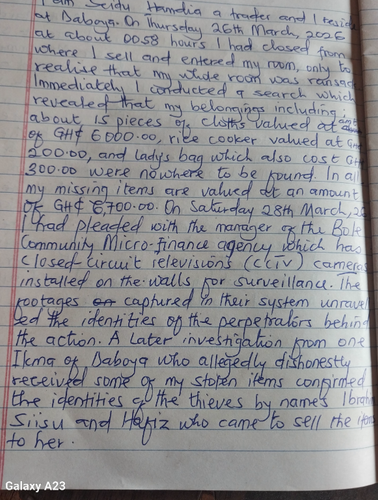 I am Seidu Hamdia a trader and I reside
at Daboya. On Thursday 26th March, 2026
at about 0058 hours I had closed from
where I sell and entered my room, only to
realise that my whole room was
Immediately I conducted a search which
revealed that my belongings including
about 15 pieces of cloths valued at
of GH¢ 6000.00, rice cooker valued at
200.00, and ladys bag which also cost
300.00 were nowhere to be found. In all
my missing items are valued at an amount
of GH¢ 6,700.00. On Saturday 28th March, 20
I had pleaded with the manager of the Bole
Community Micro-finance agency which has
closed-circuit televisions (CCTV) cameras
installed on the walls for surveillance. The
footages captured in their system unravel
led the identities of the perpetrators behind
the action. A later investigation from one
Ikma of Daboya who allegedly dishonestly
received some of my stolen items confirmed
the identities of the thieves by names Ibrah
Siisu and Hafiz who came to sell the items
to her.
Galaxy A23